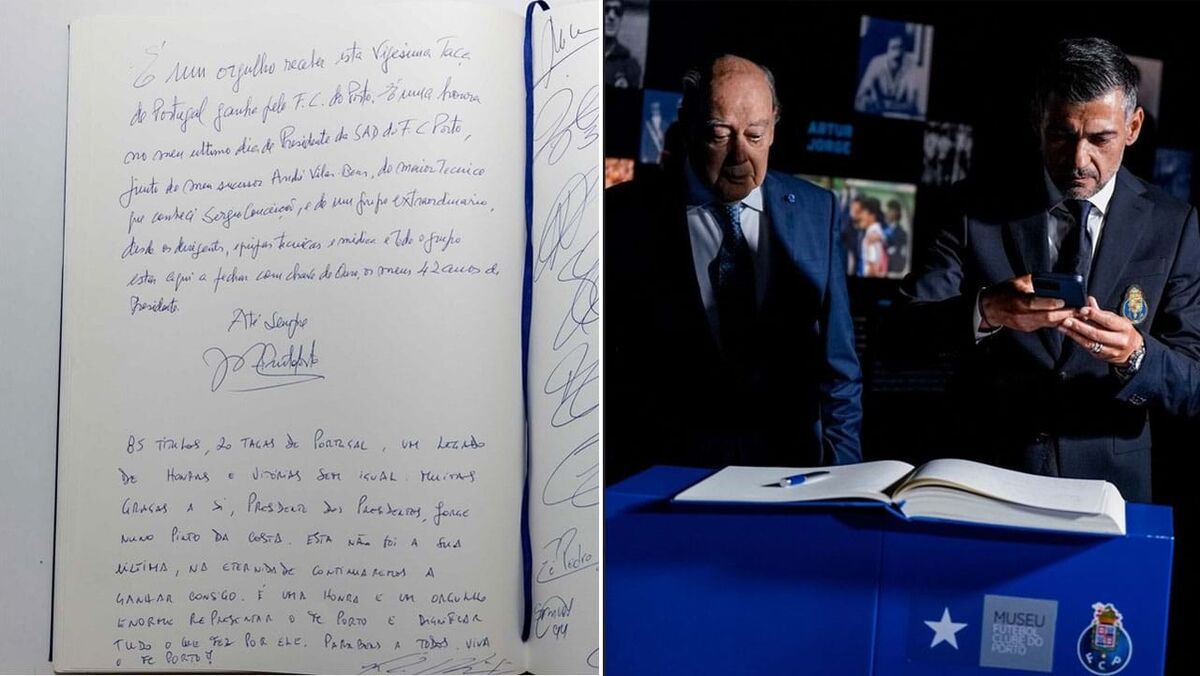 É um orgulho receber esta Vigésima Taça
de Portugal ganha pelo F.C. do Porto. É uma honra
no meu ultimo dia de Presidente da SAD do F C Porto,
junto do meu sucessor André Vilas Boas, do maior Tecnico
que conheci Sergio Conceição, e de um grupo extraordinário,
desde os dirigentes, equipas tecnicas e médica e todo o grupo
estar aqui a fechar com chave de Ouro, os meus 42 anos de
Presidente.
Até Sempre
85 TÍTULOS, 20 TAÇAS DE PORTUGAL, UM LEGADO
DE HONRAS E VITÓRIAS SEM IGUAL. MUITAS
GRAÇAS A SI, PRESIDENTE DOS PRESIDENTES, JORGE
NUNO PINTO DA COSTA. ESTA NÃO FOI A SUA
ÚLTIMA, NA ETERNIDADE CONTINUAREMOS A
GANHAR CONSIGO. É UMA HONRA E UM ORGULHO
ENORME REPRESENTAR O FC PORTO E DIGNIFICAR
TUDO O QUE FEZ POR ELE. PARABÉNS A TODOS. VIVA
O FC PORTO!
Zé Pedro
ARTUR
JORGE
MUSEU
FUTEBOL
CLUBE DO
PORTO
FCP